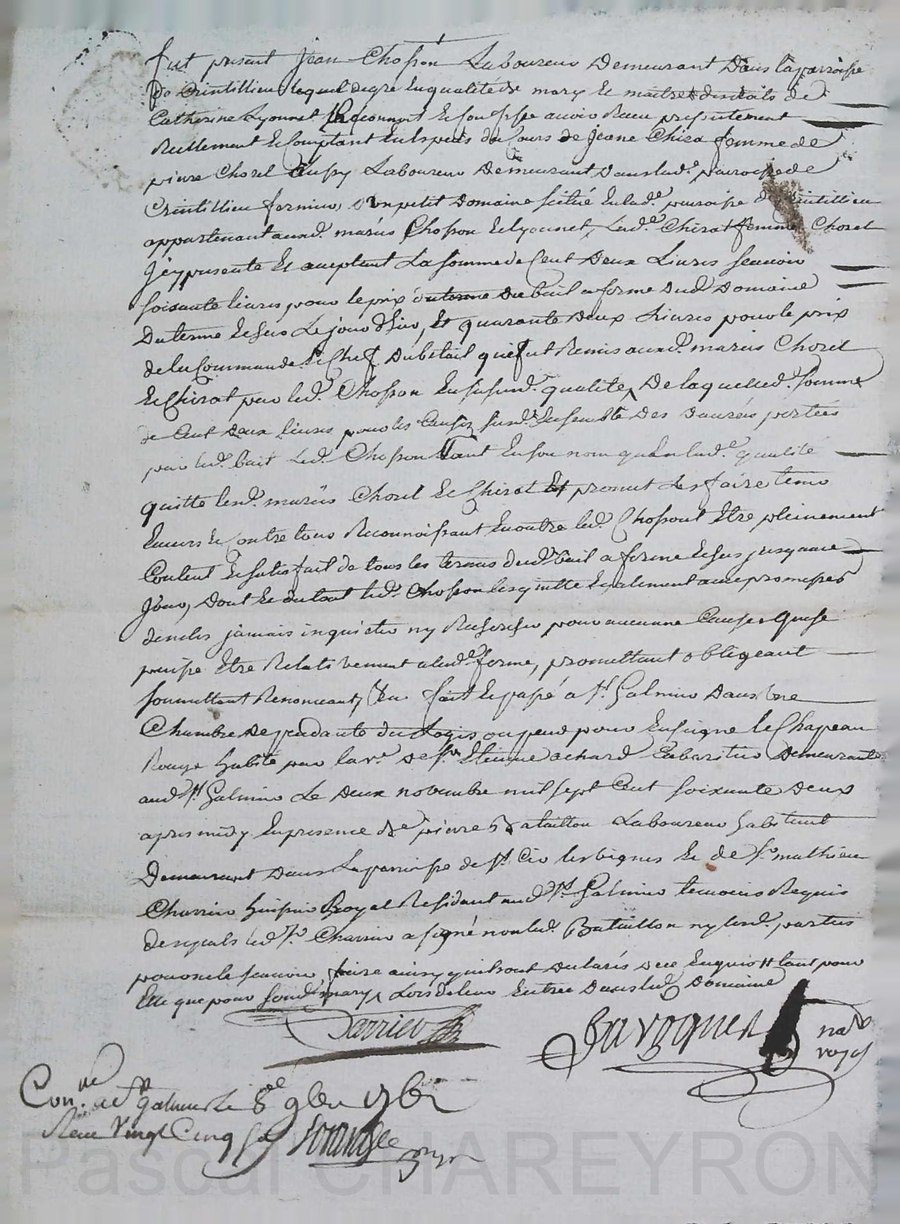 fut present jean Chosson Laboureur Demeurant Dans la parroisse
de Crintillieu lequel de gre en qualité de mary Et maitre des droits de
Catherine Lyonnet Reconnoit Et Confesse avoir Receu presentement
Reellement Et Comptant En Especes du Cours de jeane Chirat femme de
pierre Chorel aussy Laboureur Demeurant Dans lad. parroisse de
Crintillieu fermier D'un petit Domaine scitué En lad. parroisse de Crintillieu
appartenant auxd. mariés Chosson Et Lyonnet, Lad.e Chirat femme Chorel
Icy presente Et acceptant La somme de Cent Deux Livres scavoir
soixante livres pour le prix du terme du bail a ferme dud. Domaine
Du terme Echus Le jour d'hier, Et quarante Deux Livres pour le prix
de la Commande Et Chef Du bétail qui fut Remis auxd. mariés Chorel
Et Chirat par led. Chosson En susd. qualité, De laquelle d. somme
de Cent Deux Livres pour les Causes susd. Ensemble Des Danrées portées
par led. bail Led. Chosson tant En son nom qu'en lad.e qualité
quitte lesd. mariés Chorel Et Chirat Et promet Les faire tenir
Envers Et Contre tous Reconnoissant En outre led. Chosson Etre pleinement
Content Et satisfait de tous les termes dud. bail a ferme Echus jusqu'a ce
jour, Dont Et du tout led. Chosson les quitte Egalement avec promesse
de ne les jamais inquieter ny Rechercher pour aucune Cause que ce
puisse Etre Relativement a lad.e ferme, promettant obligeant
soumettant Renonceant, &a fait Et passé à St. Galmier Dans une
Chambre Dependante du Logis ou pend pour Enseigne le Chapeau
Rouge habité par la v.e de Sr. Etienne achard Cabaretier Demeurante
aud. St. Galmier Le Deux novembre mil sept Cent soixante Deux
apres midy En presence De pierre Bataillon Laboureur habitant
Demeurant Dans La parroisse de St. Cir les vignes Et de Sr. mathieu
Charrier huissier Royal Residant aud. St. Galmier temoins Requis
Desquels led. Sr. Charrier a signé non led. Bataillon ny lesd. parties
pour ne le scavoir faire ainsy qu'ils ont Declaré De ce Enquis # tant pour
Elle que pour sond. mary, Lors de leur Entrée Dans led. Domaine
Charrier
not.re
royal
Con.lé a St. galmier le 8.e 9bre 1762
Receu Vingt Cinq sols
Pascal CHAREYRON